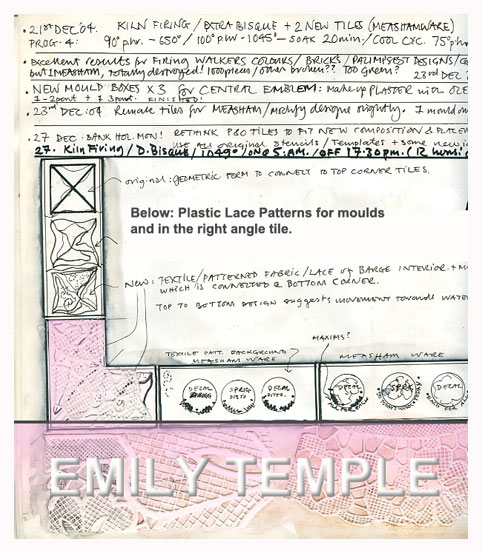 • 21st DEC '04. KILN FIRING / EXTRA BISQUE + 2 NEW TILES (MEASHAMWARE)
PROG. 4: 90° p.hr. - 650° / 100° P.H. - 1045° - SOAK 20min. / COOL CYC. 75° phr
• Excellent results for FIRING WALKERS COLOURS / BRICKS / PALIMPSEST DESIGNS /
but 1 MEASHAM, totally destroyed! 1000 pieces / other broken?? Too green? 23rd DEC
• NEW MOULD BOXES X 3 for CENTRAL EMBLEM: Make up PLASTER with
FINISHED!
• 23rd DEC '04 Remake tiles for MEASHAM / modify designs slightly. 1 mould
• 27 DEC. BANK HOL. MON! RETHINK PRO TILES TO FIT NEW COMPOSITION &
USE ALL original stencils / Templates + some new
27. Kiln Firing / D. Bisque / 1049° / ON @ 5. AM. / OFF 17:30 p.m.
original: GEOMETRIC FORM TO CONNECT TO TOP CORNER TILES.
Below: Plastic Lace Patterns for moulds
and in the right angle tile.
New: TEXTILE / PATTERNED FABRIC / LACE of BARGE INTERIOR. +
WHICH IS CONNECTED @ BOTTOM CORNER.
TOP TO BOTTOM DESIGN suggests MOVEMENT TOWARDS WATER
MAXIMS?
TEXTILE PATT. BACKGROUND
MEASHAM WARE
MEASHAM WARE
DECAL
SPRIG
DITTO
DECAL
DITTO.
DECAL
SPRIG
DECAL
EMILY TEMPLE